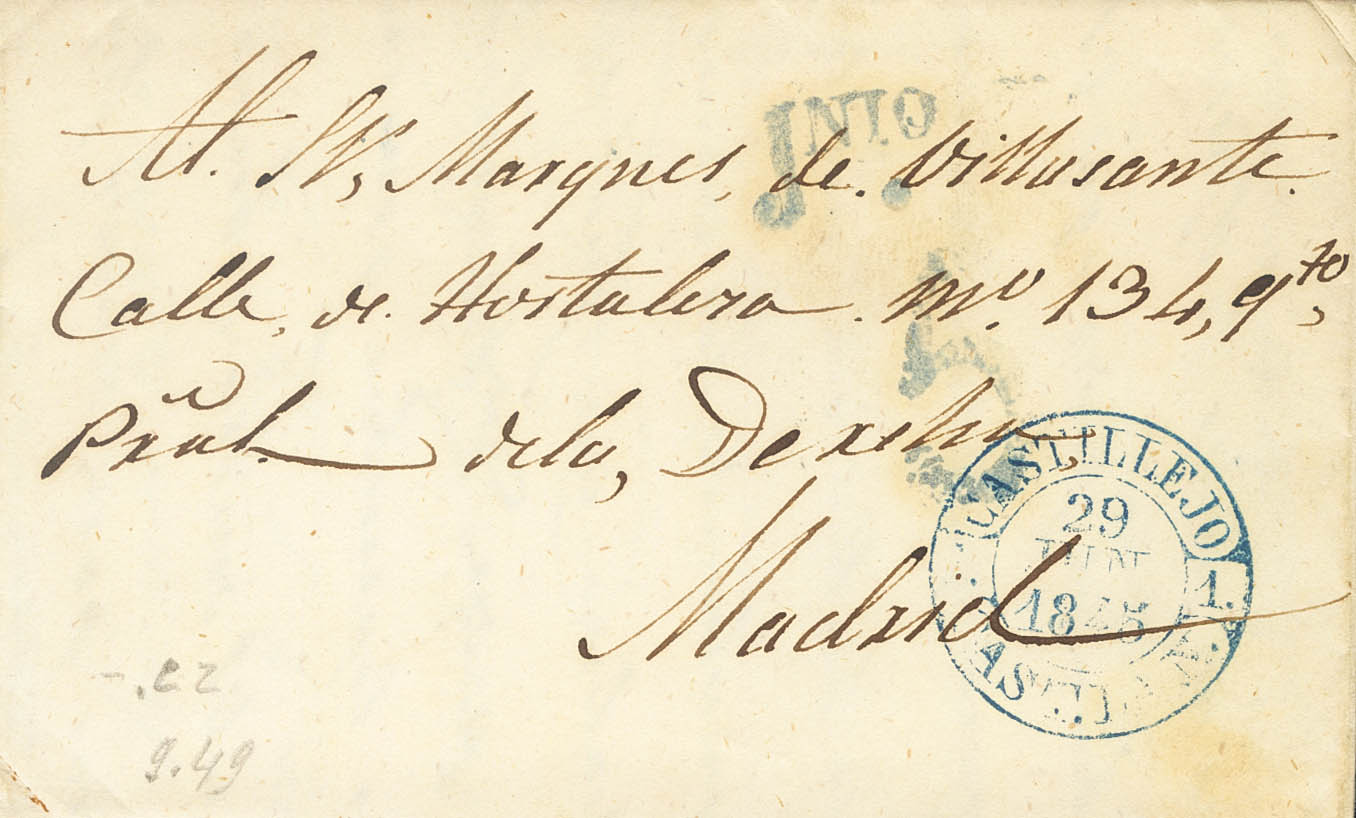 Al. Sr, Marques, de. Villasante.
Calle, de. Hortaleza. nº. 134, qto,
Pral. dela, Derecha
Madrid
JUNIO
CASTILLEJO
29
JUN
1845
1.
-.cz
9.49